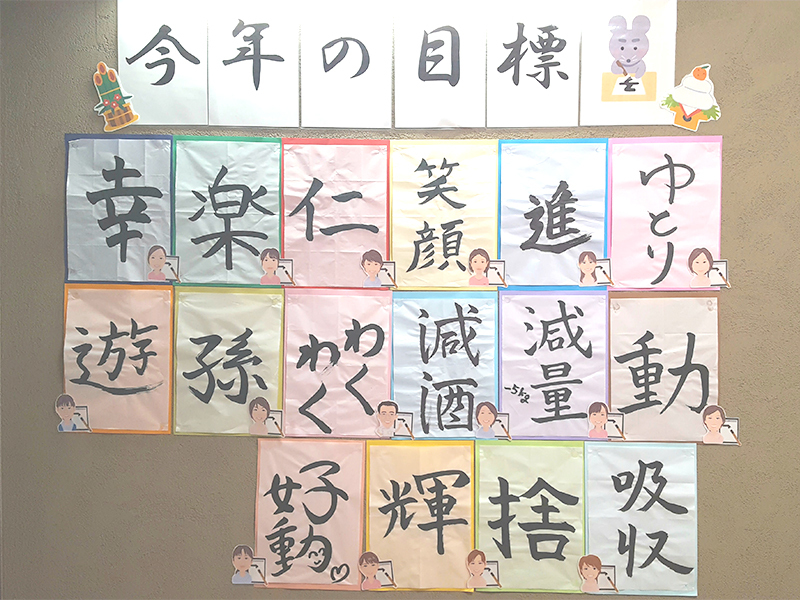 今年の目標
幸
楽
仁
笑顔
進
ゆとり
遊
孫
わくわく
減酒
減量
-5kg
動
好動
輝
捨
吸収